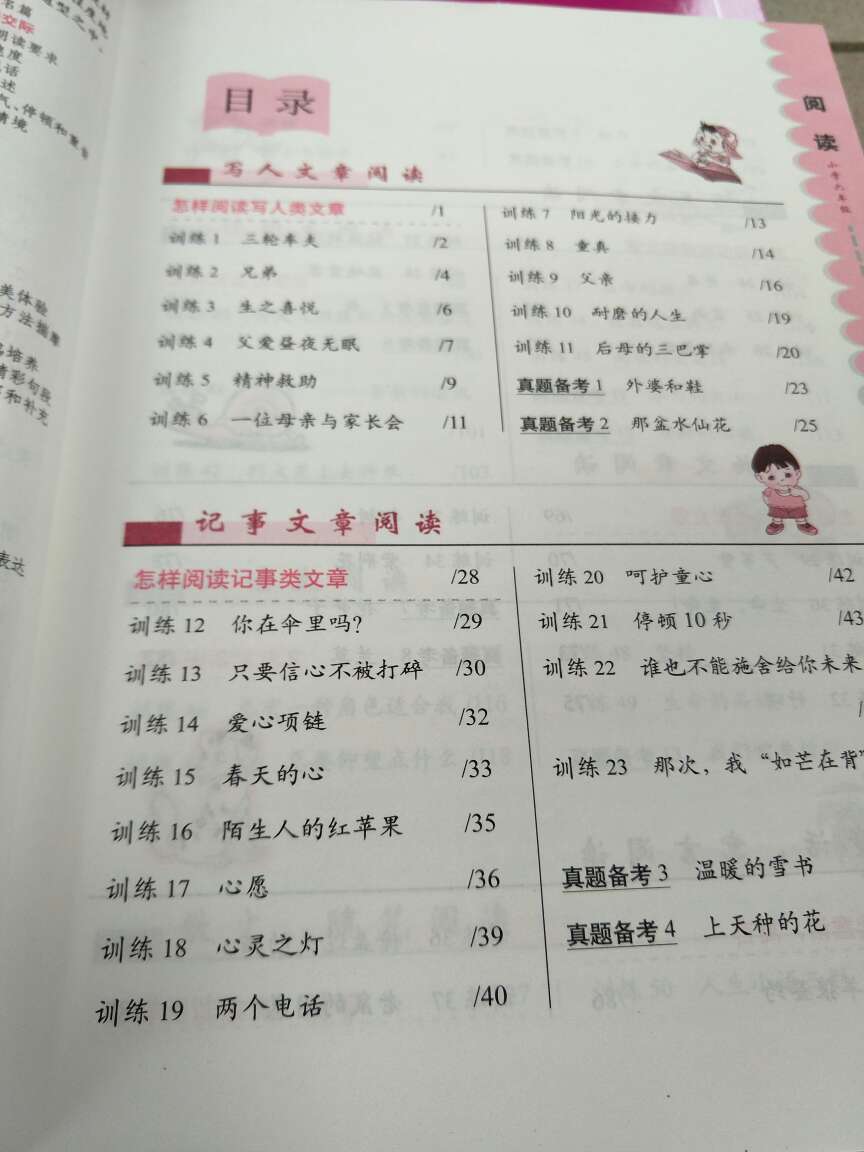 交际
朗读要求
速度
话
述
气、停顿和重音
情境
类体验
方法指导
培养
精彩句段
和补充
表达
阅读
小学六年级
目录
写人文章阅读
怎样阅读写人类文章 /1
训练1 三轮车夫 /2
训练2 兄弟 /4
训练3 生之喜悦 /6
训练4 父爱昼夜无眠 /7
训练5 精神救助 /9
训练6 一位母亲与家长会 /11
训练7 阳光的接力 /13
训练8 童真 /14
训练9 父亲 /16
训练10 耐磨的人生 /19
训练11 后母的三巴掌 /20
真题备考1 外婆和鞋 /23
真题备考2 那盆水仙花 /25
记事文章阅读
怎样阅读记事类文章 /28
训练12 你在伞里吗? /29
训练13 只要信心不被打碎 /30
训练14 爱心项链 /32
训练15 春天的心 /33
训练16 陌生人的红苹果 /35
训练17 心愿 /36
训练18 心灵之灯 /39
训练19 两个电话 /40
训练20 呵护童心 /42
训练21 停顿10秒 /43
训练22 谁也不能施舍给你未来
/
训练23 那次，我“如芒在背”
真题备考3 温暖的雪书
真题备考4 上天种的花